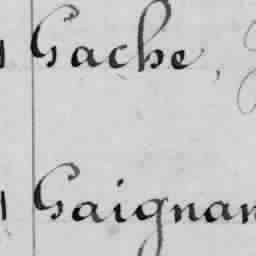 Gache,
Gaignan